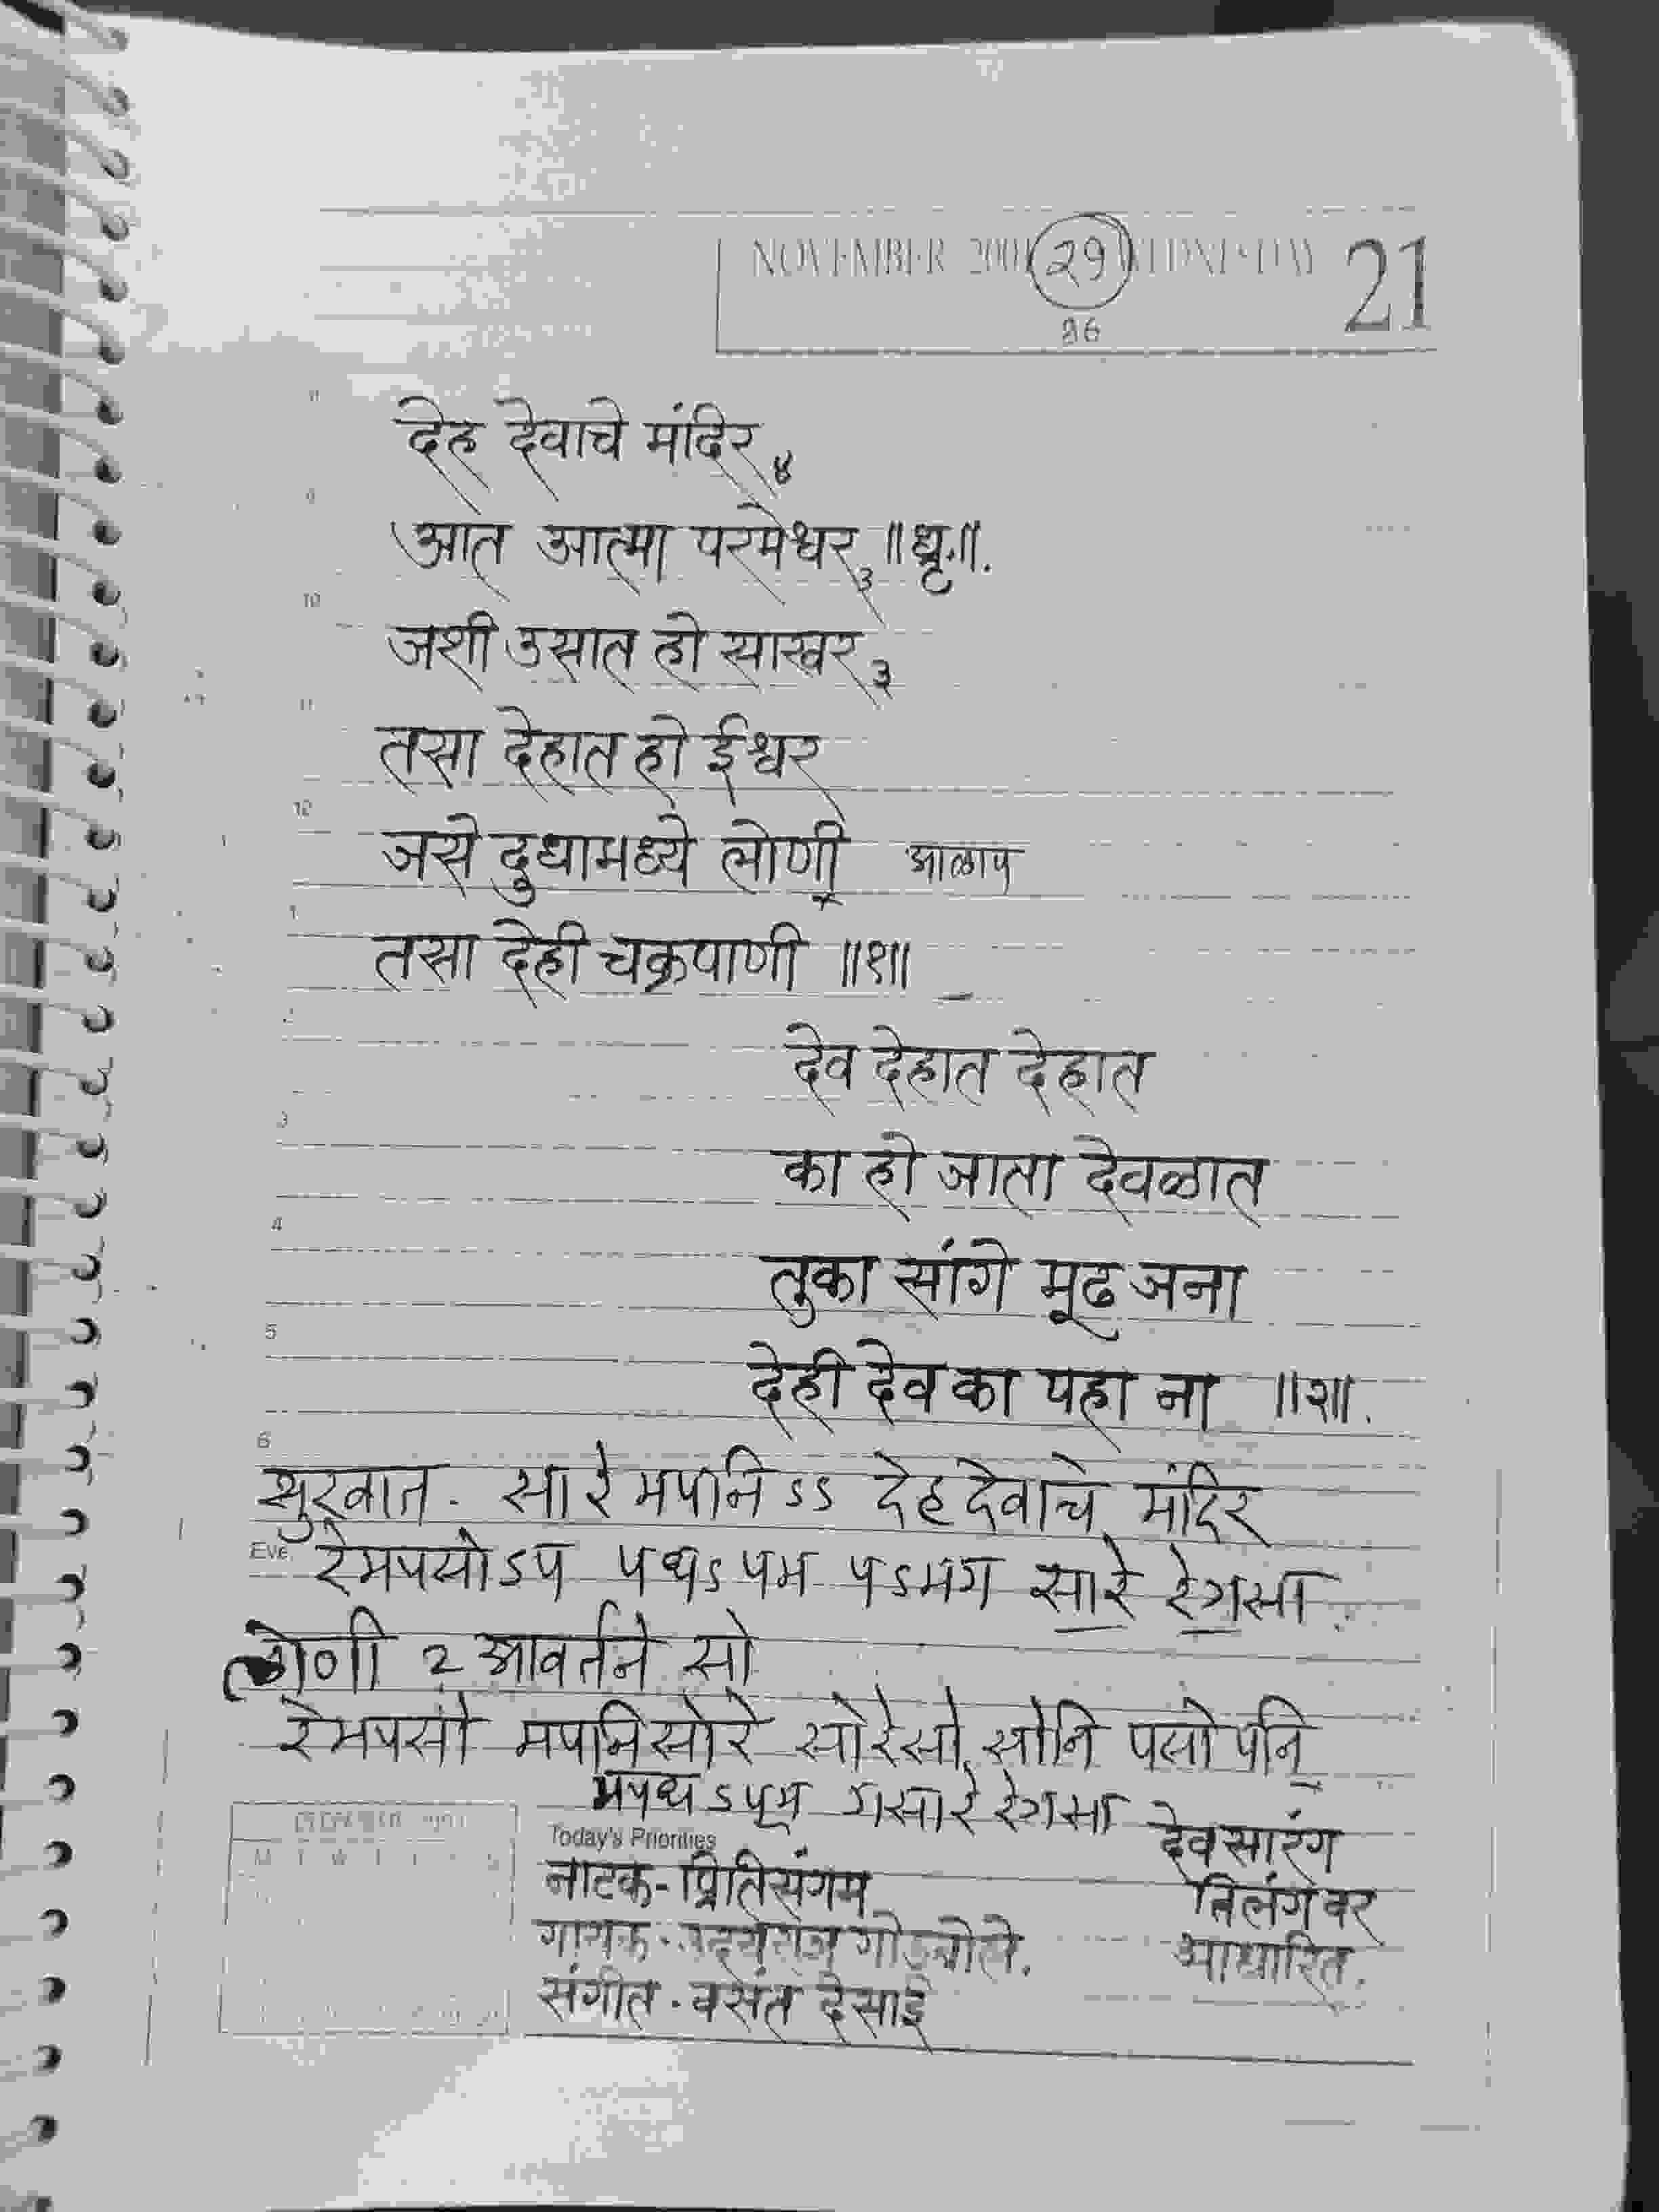 NOVEMBER 2001 २९ WEDNESDAY 21
देह देवाचे मंदिर ४
आत आत्मा परमेश्वर ३ ॥धृ.॥.
जशी उसात हो साखर ३
तसा देहात हो ईश्वर
जसे दुधामध्ये लोणी आळाप
तसा देही चक्रपाणी ॥१॥
देव देहात देहात
का हो जाता देवळात
तुका सांगे मूढ जना
देही देव का पहा ना ॥२॥.
सुरवात - सा रे म प नि ऽऽ देह देवाचे मंदिर
Eve. रेमपसोऽप पधऽपम पऽमग सारे रेगसा
लोणी २ आवर्तने सो
रेमपसो मपनिसोरे सोरेसो सोनि पसो पनि
मपधऽपम गसारे रेगसा
देवसारंग
Today's Priorities
नाटक - प्रितिसंगम
तिलंग वर
गायक - उदयराज गोडबोले.
आधारित.
संगीत - वसंत देसाई